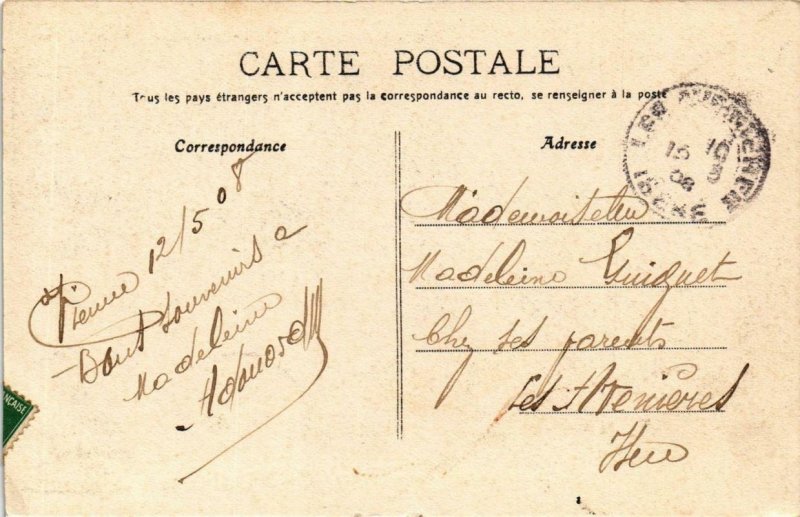 CARTE POSTALE
Tous les pays étrangers n'acceptent pas la correspondance au recto, se renseigner à la poste
Correspondance
Vienne 12/5 08
Bons souvenirs a
Madeleine
Adresse
Mademoiselle
Madeleine Guiguet
Chez ses parents
Les Avenières
Isère
LES AVENIERES
15 10
08
ISERE
ÇAISE